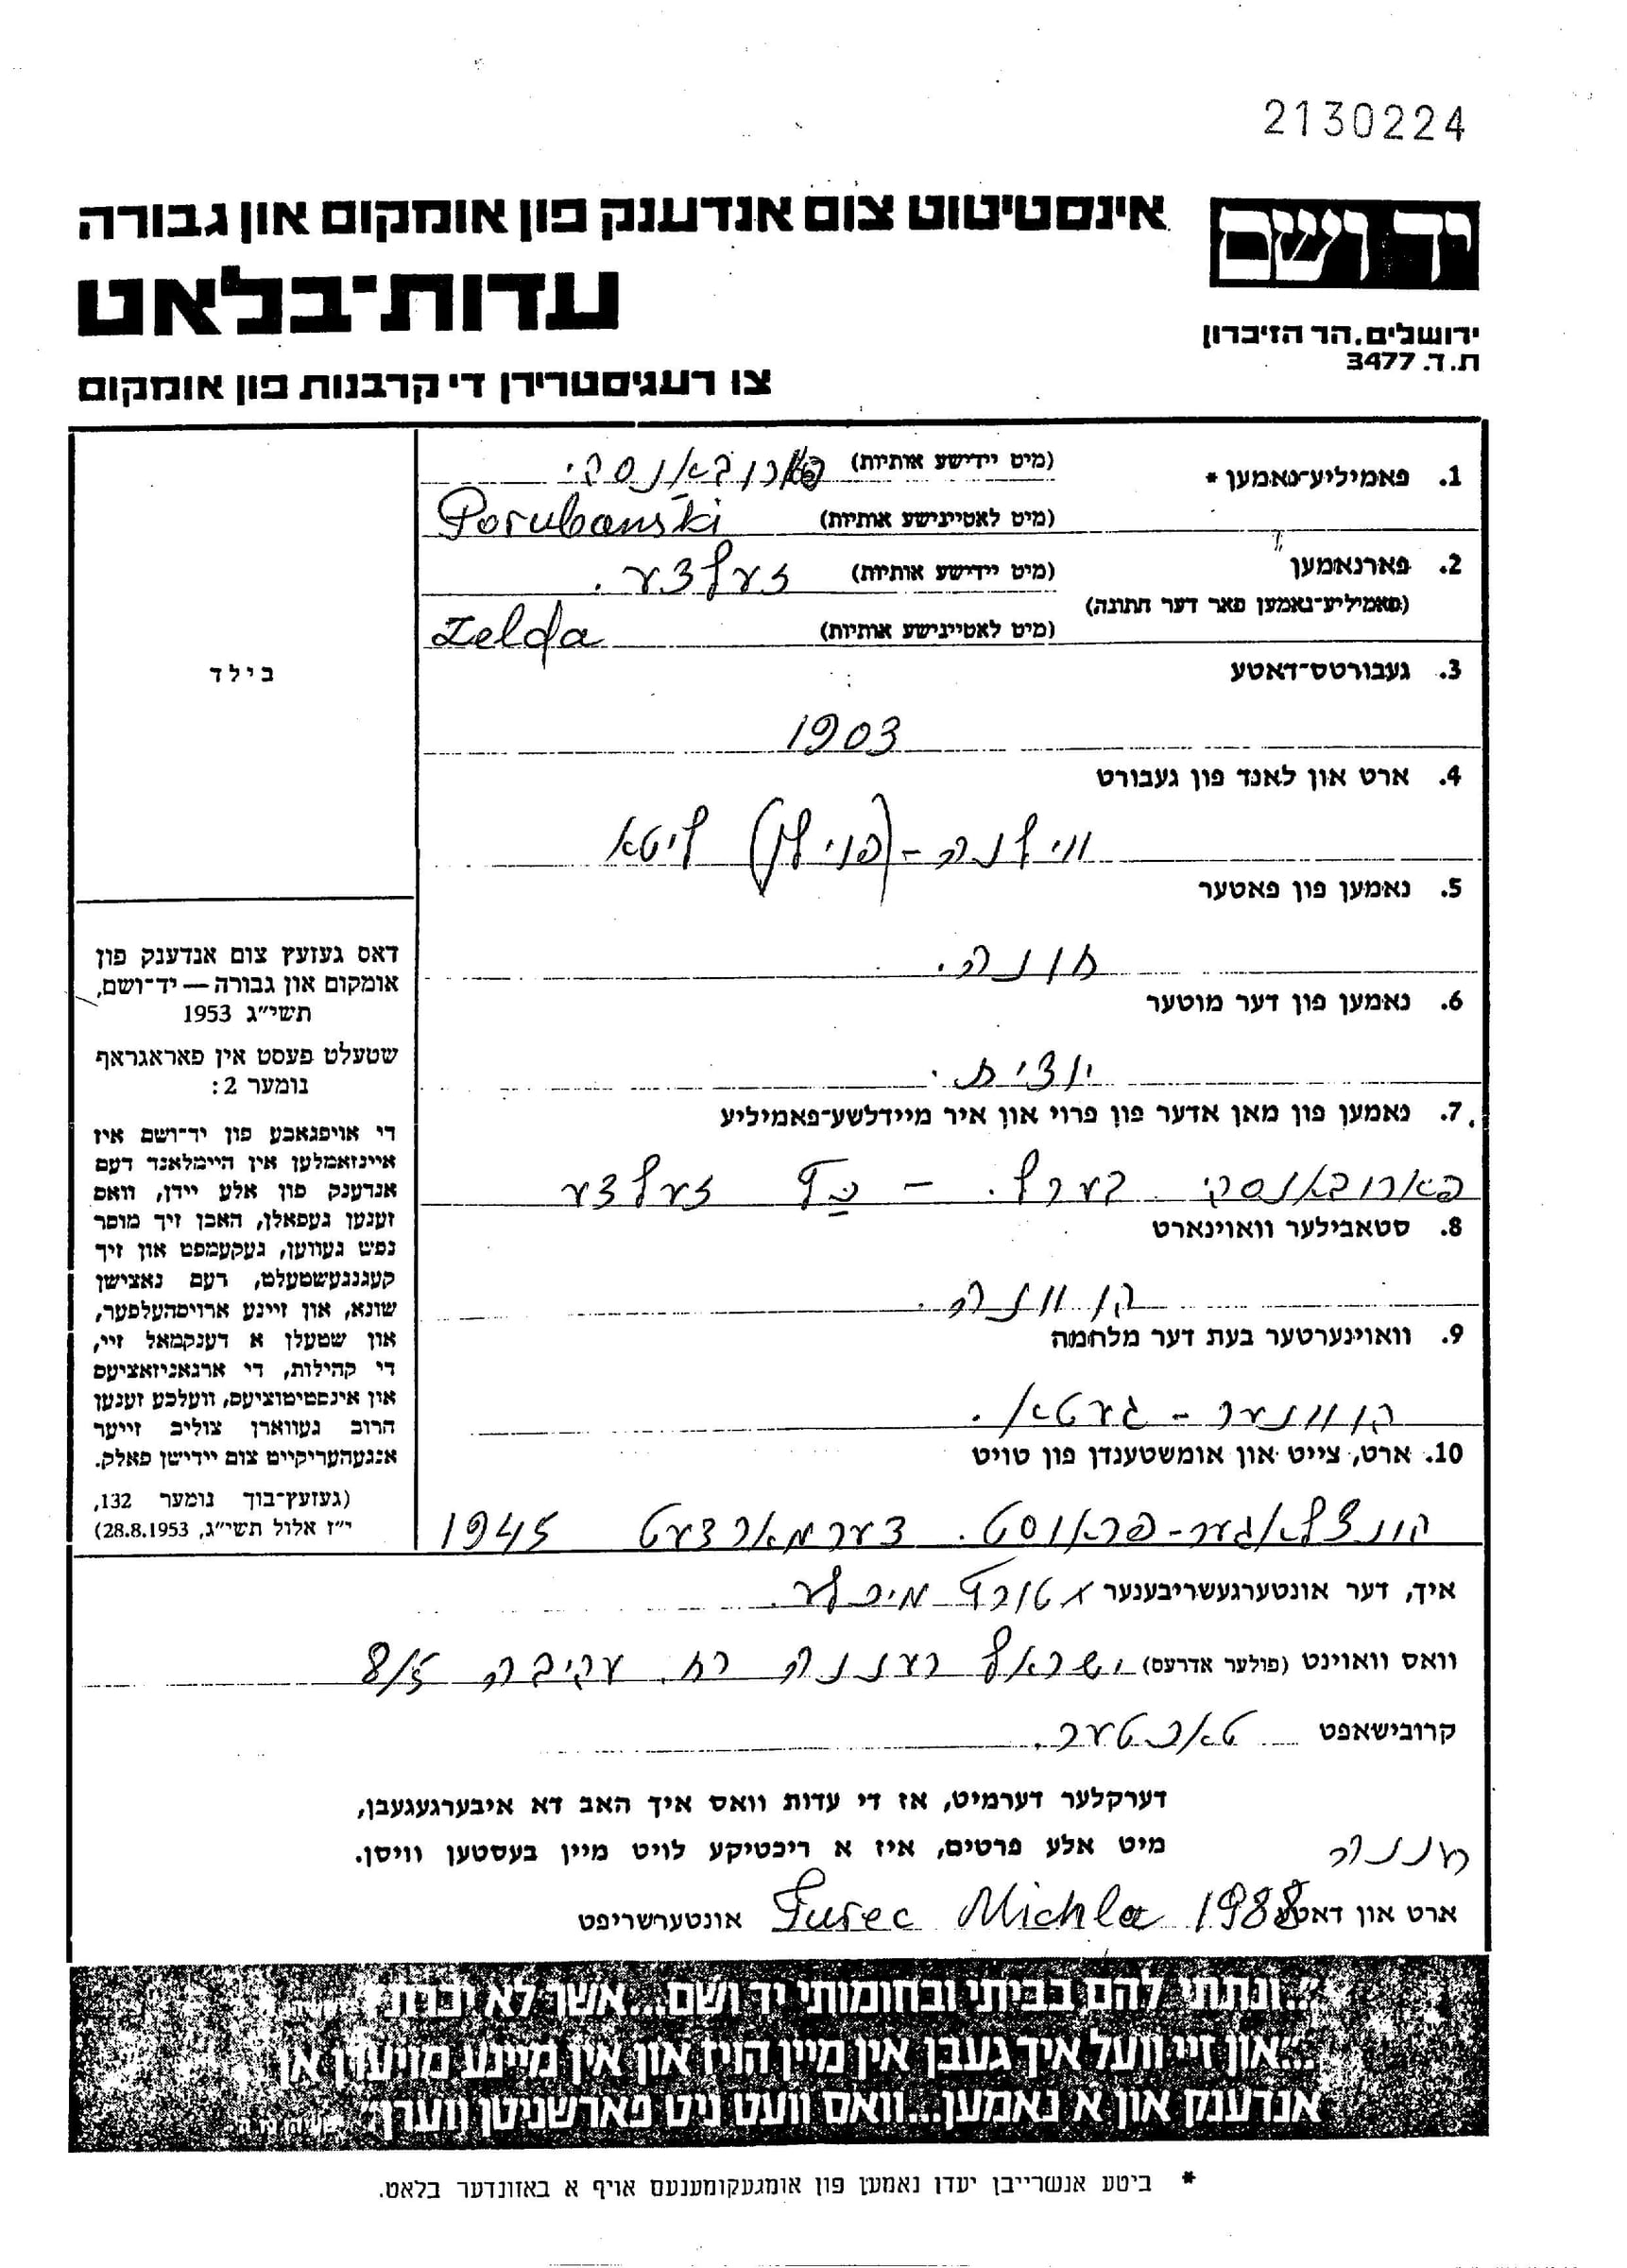 2130224
יד ושם
אינסטיטוט צום אנדענק פון אומקום און גבורה
עדות־בלאט
ירושלים. הר הזיכרון
ת.ד. 3477
צו רעגיסטרירן די קרבנות פון אומקום
1. פאמיליע־נאמען * (מיט יידישע אותיות) פּאַרובאַנסקי.
(מיט לאטיינישע אותיות) Porubanski
2. פארנאמען (מיט יידישע אותיות) זעלדע.
(פאמיליע־נאמען פאר דער חתונה)
(מיט לאטיינישע אותיות) Zelda
3. געבורטס־דאטע
1903
4. ארט און לאנד פון געבורט
ווילנה - (פוילן) ליטא
5. נאמען פון פאטער
חונה.
6. נאמען פון דער מוטער
יודית.
7. נאמען פון מאן אדער פון פרוי און איר מיידלשע־פאמיליע
פארובאנסקי בערל. – כץ זעלדע
8. סטאבילער וואוינארט
קוונה.
9. וואוינערטער בעת דער מלחמה
קוונער - געטא.
10. ארט, צייט און אומשטענדן פון טויט
קונצלאגער - פראוסט. דערמארדעט 1945
בילד
דאס געזעץ צום אנדענק פון
אומקום און גבורה — יד־ושם,
תשי״ג 1953
שטעלט פעסט אין פאראגראף
נומער 2:
די אויפגאבע פון יד־ושם איז
איינזאמלען אין היימלאנד דעם
אנדענק פון אלע יידן, וואס
זענען געפאלן, האבן זיך מוסר
נפש געווען, געקעמפט און זיך
קעגנגעשטעלט, דעם נאצישן
שונא, און זיינע ארויסהעלפער,
און שטעלן א דענקמאל זיי,
די קהילות, די ארגאניזאציעס
און אינסטיטוציעס, וועלכע זענען
הרוב געווארן צוליב זייער
אנגעהעריקייט צום יידישן פאלק.
(געזעץ־בוך נומער 132,
י״ז אלול תשי״ג, 28.8.1953)
איך, דער אונטערגעשריבענער טורץ מיכלע.
וואס וואוינט (פולער אדרעס) ישראל רעננה רח. עקיבה 8/5
קרובישאפט טאכטער.
דערקלער דערמיט, אז די עדות וואס איך האב דא איבערגעגעבן,
מיט אלע פרטים, איז א ריכטיקע לויט מיין בעסטען וויסן.
רעננה
ארט און דאטע 1988 Turec Michla אונטערשריפט
״...ונתתי להם בביתי ובחומותי יד ושם...אשר לא יכרת״
״...און זיי וועל איך געבן אין מיין הויז און אין מיינע מויערן אן
אנדענק און א נאמען...וואס וועט ניט פארשניטן ווערן״
* ביטע אנשרייבן יעדן נאמען פון אומגעקומענעם אויף א באזונדער בלאט.